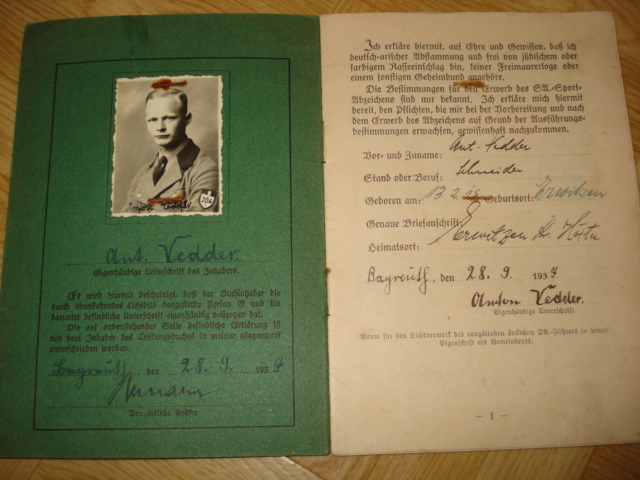 204
Ant. Vedder.
Eigenhändige Unterschrift des Inhabers.
Es wird hiermit bescheinigt, daß der Buchinhaber die
durch obenstehendes Lichtbild dargestellte Person ist und die
darunter befindliche Unterschrift eigenhändig vollzogen hat.
Die auf nebenstehender Seite befindliche Erklärung ist
von dem Inhaber des Leistungsbuches in meiner Gegenwart
unterschrieben worden.
Bayreuth, den 28. 9. 1937
Hermann
Der örtliche Prüfer
Ich erkläre hiermit, auf Ehre und Gewissen, daß ich
deutsch-arischer Abstammung und frei von jüdischem oder
farbigem Rasseeinschlag bin, keiner Freimaurerloge oder
einem sonstigen Geheimbund angehöre.
Die Bestimmungen für den Erwerb des SA.-Sport-
Abzeichens sind mir bekannt. Ich erkläre mich hiermit
bereit, den Pflichten, die mir bei der Vorbereitung und nach
dem Erwerb des Abzeichens auf Grund der Ausführungs-
bestimmungen erwachsen, gewissenhaft nachzukommen.
Vor- und Zuname: Ant. Vedder
Stand oder Beruf: Schneider
Geboren am: 13. 2. Geburtsort:
Genaue Briefanschrift:
Heimatsort:
Bayreuth, den 28. 9. 1937
Anton Vedder.
Eigenhändige Unterschrift.
Raum für den Sichtvermerk des rangältesten örtlichen SA.-Führers in seiner
Eigenschaft als Gemeinderat.
– 1 –